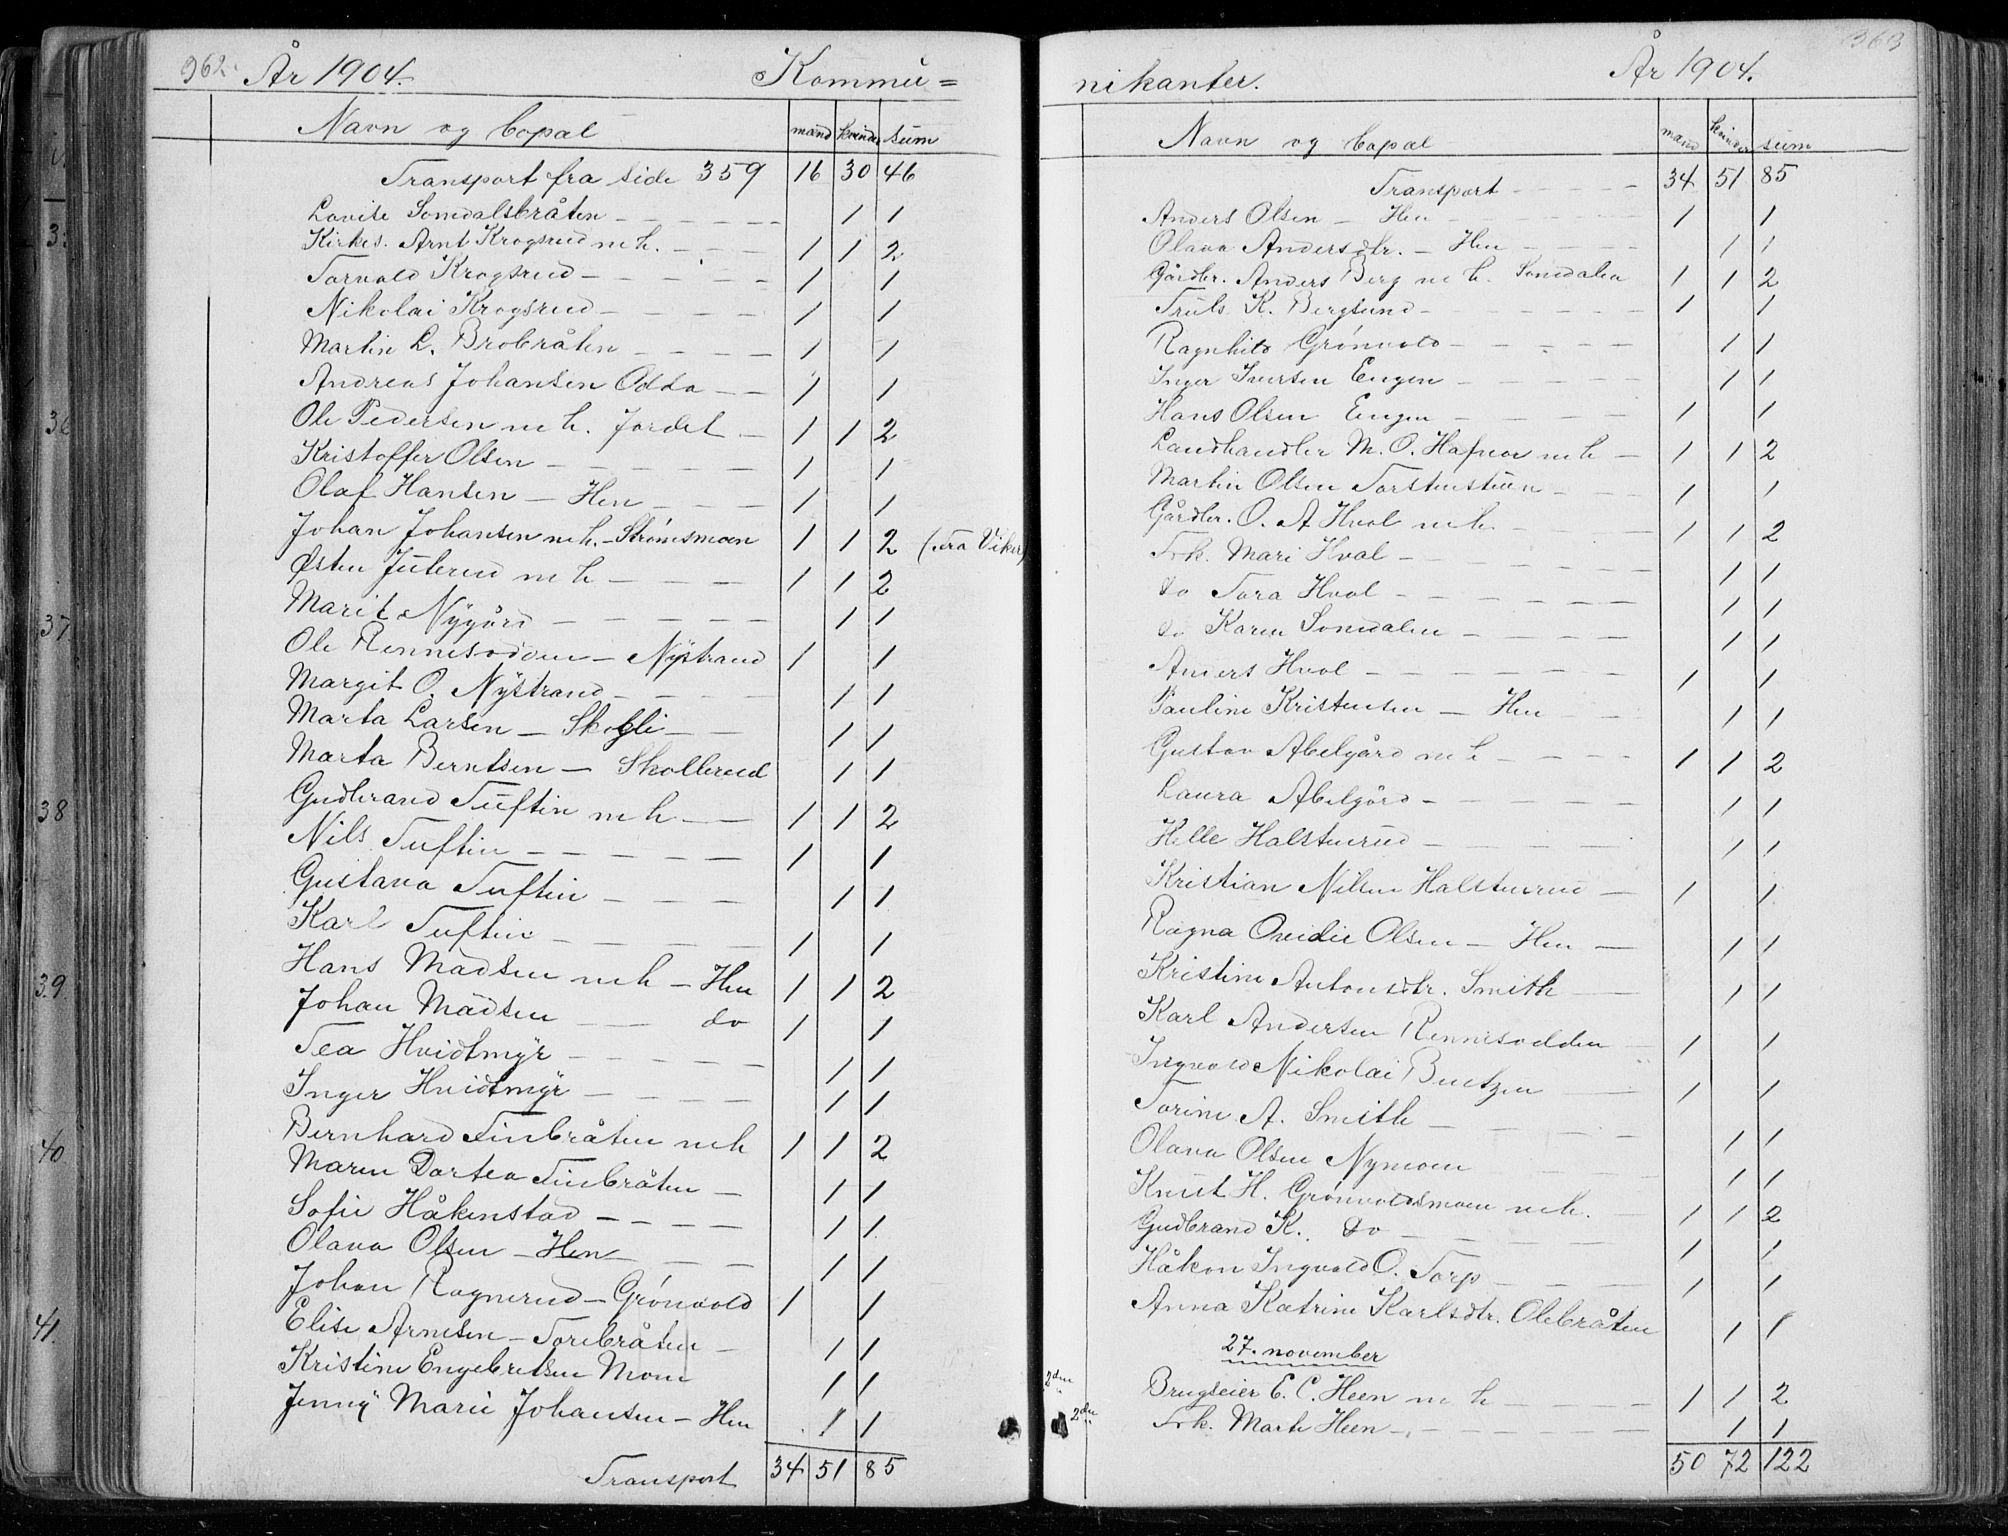 362. År 1904. Kommu=
Navn og bopæl mænd kvinder sum
Transport fra side 359 16 30 46
Lovise Somdalsbråten 1 1
Kirkes. Arnt Krogsrud m h. 1 1 2
Torvald Krogsrud 1 1
Nikolai Krogsrud 1 1
Martin L. Brobråten 1 1
Andreas Johansen Odda 1 1
Ole Pedersen m h. Jordet 1 1 2
Kristoffer Olsen 1 1
Olaf Hansen – Hen 1 1
Johan Johansen m h. – Strømsmoen 1 1 2 (fra Viker)
Østen Juterud m h 1 1 2
Marit Nygård 1 1
Ole Rennesodden – Nystrand 1 1
Margit O. Nystrand 1 1
Marta Larsen – Skogli 1 1
Marta Berntsen – Skollerud 1 1
Gudbrand Tuftin m h 1 1 2
Nils Tuftin 1 1
Gustava Tuftin 1 1
Karl Tuftin 1 1
Hans Madsen m h – Hen 1 1 2
Johan Madsen do 1 1
Tea Hvidtmyr 1 1
Inger Hvidtmyr 1 1
Bernhard Finbråten m h 1 1 2
Maren Dortea Finbråten 1 1
Sofie Håkenstad 1 1
Olava Olsen – Hen 1 1
Johan Ragnerud – Grönvold 1 1
Elise Arnesen – Torebråten 1 1
Kristine Engebretsen Moen 1 1
Jenny Marie Johansen – Hen 1 1
Transport 34 51 85
363
nikanter. År 1904.
Navn og bopæl mænd kvinder sum
Transport 34 51 85
Anders Olsen – Hen 1 1
Olava Andersdtr. – Hen 1 1
Gårdbr. Anders Berg m h. Somdalen 1 1 2
Truls K. Berglund 1 1
Ragnhild Grönvold 1 1
Inger Iversen Engen 1 1
Hans Olsen Engen 1 1
Landhandler M. O. Hafnor m h 1 1 2
Martin Olsen Torstenstuen 1 1
Gårdbr. O. A Hval m h. 1 1 2
Frk. Mari Hval 1 1
do Tora Hval 1 1
do Karen Somdalen 1 1
Anders Hval 1 1
Pauline Kristensen – Hen 1 1
Gustav Abelgård m h 1 1 2
Laura Abelgård 1 1
Helle Halstenrud 1 1
Kristian Nilsen Halstenrud 1 1
Ragna Ovidie Olsen – Hen 1 1
Kristine Antonsdtr. Smith 1 1
Karl Andersen Rennesodden 1 1
Ingvald Nikolai Bentzen 1 1
Torine A. Smith 1 1
Olava Olsen Nymoen 1 1
Knut H. Grönvoldsmoen m h. 1 1 2
Gudbrand K. do 1 1
Håkon Ingvald O. Torp 1 1
Anna Katrine Karlsdtr. Olebråten 1 1
27. november
2den Brugseier E. C. Heen m h 1 1 2
2den Frk. Marte Heen 1 1
50 72 122
3
36
37
38
39
40
41.